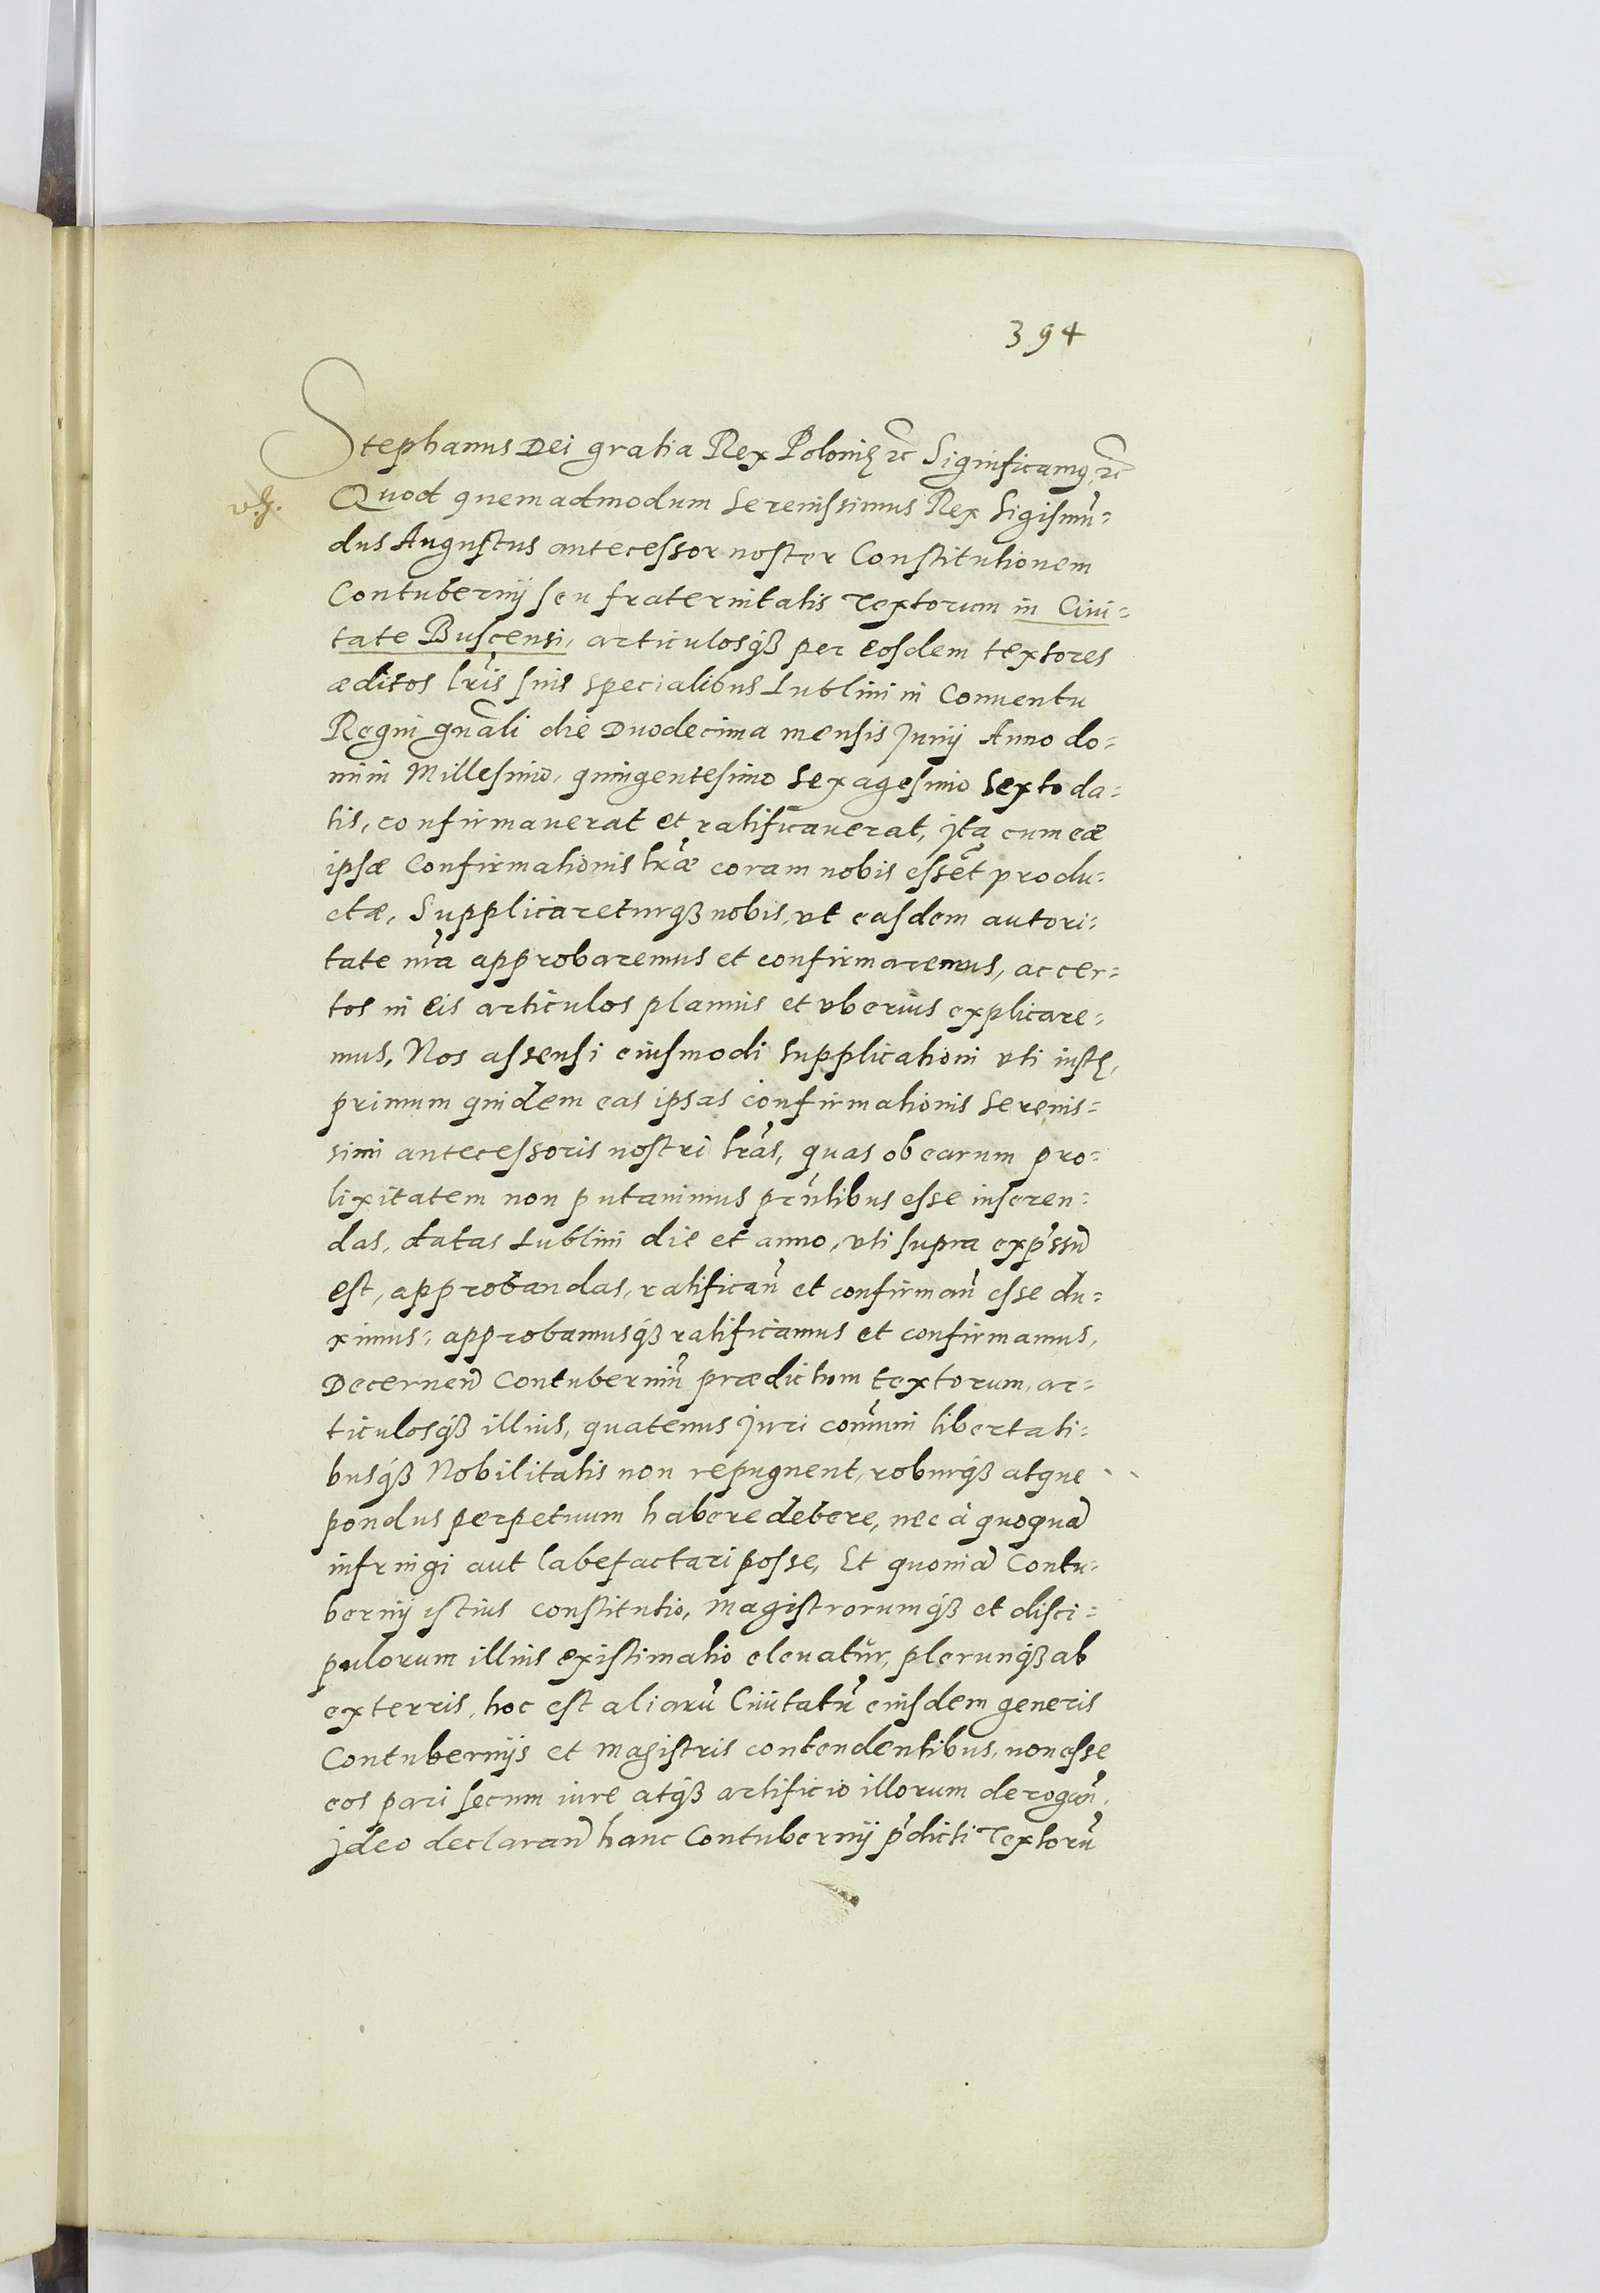 394
Stephanus Dei gratia Rex Polonię etc Significamus, etc
Quod quemadmodum Serenissimus Rex Sigismū-
dus Augustus antecessor noster Constitutionem
Contubernij seu fraternitatis Textorum in Ciui-
tate Buscensi, articulosq₃ per eosdem textores
æditos lr̃is suis specialibus Lublini in Conuentu
Regni gñali die Duodecima mensis Junij Anno do-
mini Millesimo, quingentesimo Sexagesimo Sexto da-
tis, confirmauerat et ratificauerat, Jta cum eæ
ipsæ Confirmationis lr̃æ coram nobis essēt produ-
ctæ, Supplicareturq₃ nobis, vt easdem autori-
tate nr̃a approbaremus et confirmaremus, ac cer-
tos in eis articulos planius et vberius explicare-
mus, Nos assensi eiusmodi supplicationi vti iustę,
primum quidem eas ipsas confirmationis Serenis-
simi antecessoris nostri lr̃as, quas ob earum pro-
lixitatem non putauimus prñtibus esse inseren-
das, datas Lublini die et anno, vti supra exp̃ssū
est, approbandas, ratificañ et confirmañ esse du-
ximus, approbamusq₃ ratificamus et confirmamus,
Decerneñ Contuberniū prædictum textorum, ar-
ticulosq₃ illius, quatenus Juri com̃uni libertati-
busq₃ Nobilitatis non repugnent, roburq₃ atque
pondus perpetuum habere debere, nec à quoquā
infringi aut labefactari posse, Et quoniā Contu-
bernij istius constitutio, Magistrorumq₃ et disci-
pulorum illius existimatio eleuatur, plerunq₃ ab
exterris, hoc est aliarū Ciuitatū eiusdem generis
Contubernijs et Magistris contendentibus, non esse
eos pari secum iure atq₃ artificio illorum derogañ,
Jdeo declarañ hanc Contubernij p̃dicti Textorū